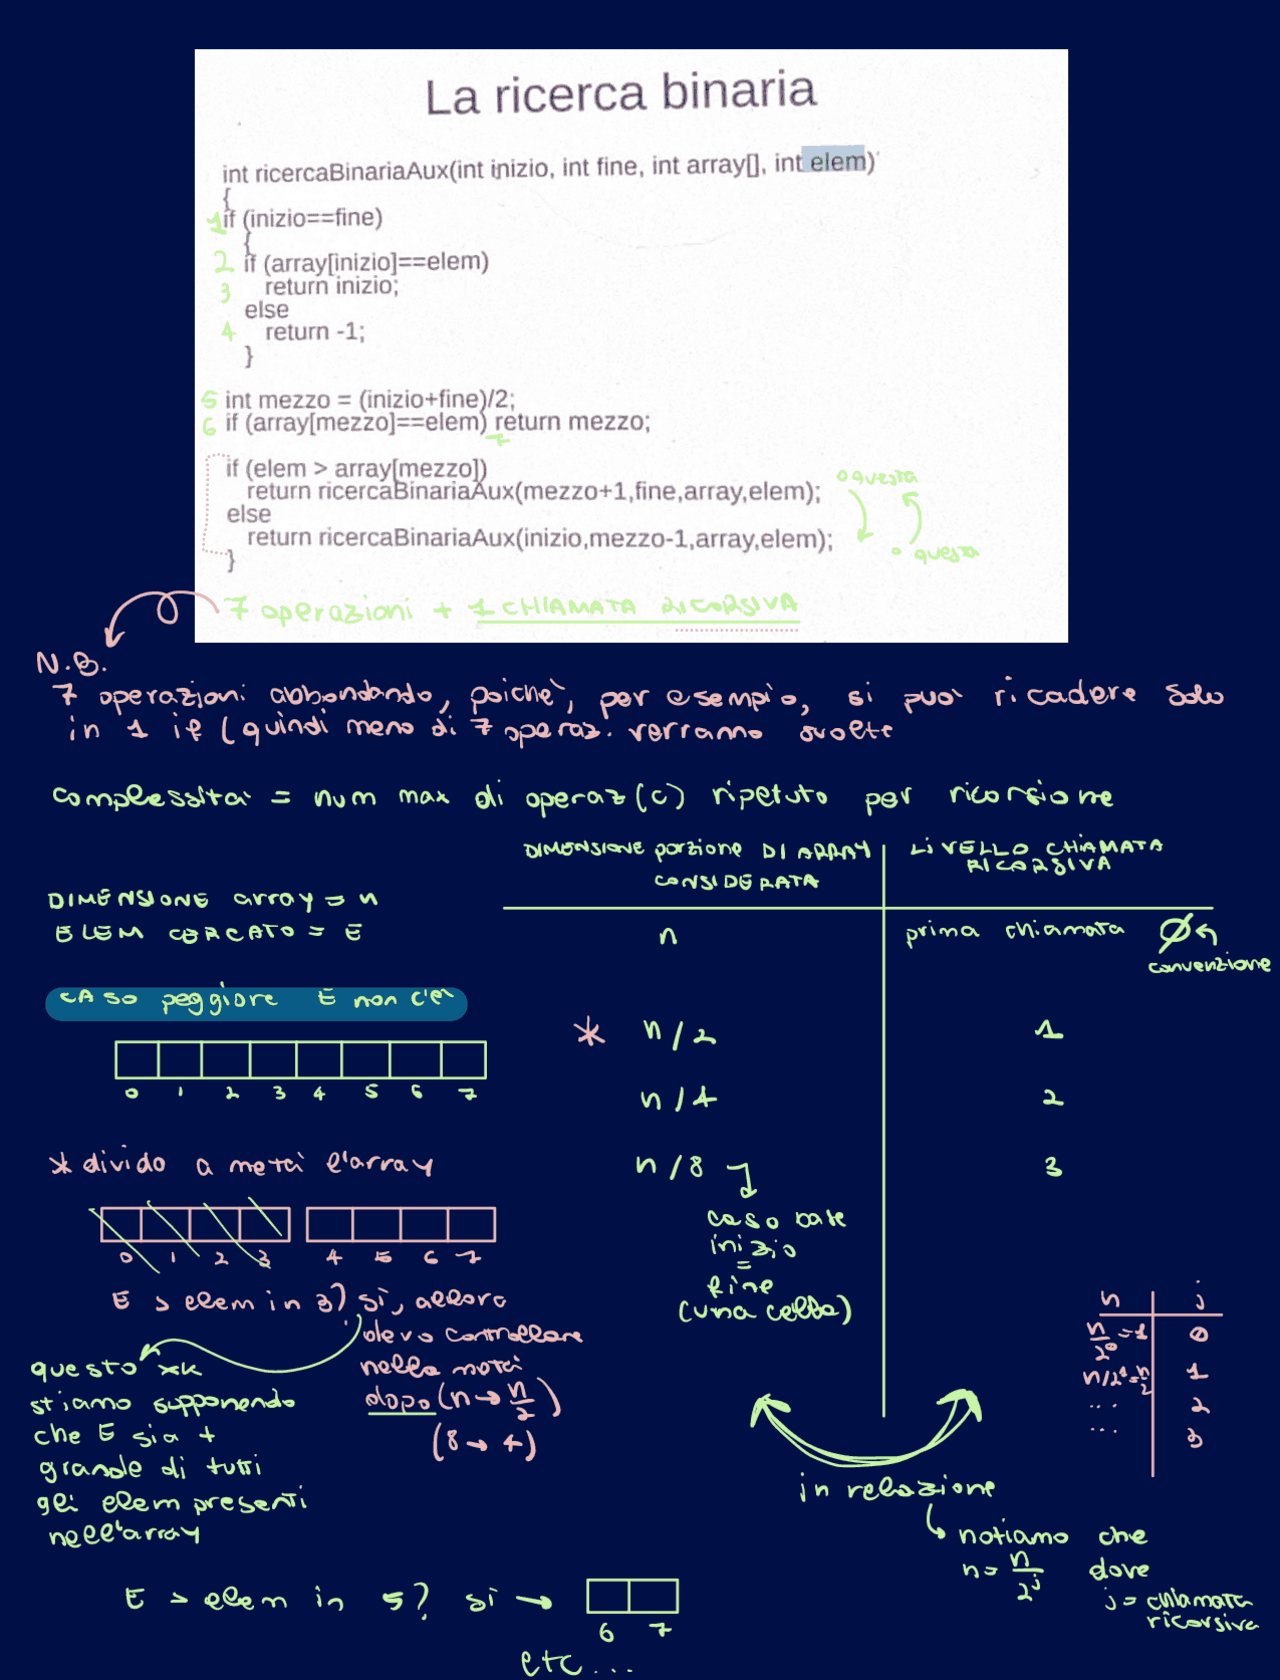 La ricerca binaria
int ricercaBinariaAux(int inizio, int fine, int array[], int elem)
{
1 if (inizio==fine)
{
2 if (array[inizio]==elem)
3 return inizio;
else
4 return -1;
}
5 int mezzo = (inizio+fine)/2;
6 if (array[mezzo]==elem) return mezzo;
7
if (elem > array[mezzo])
o questa
return ricercaBinariaAux(mezzo+1,fine,array,elem);
else
return ricercaBinariaAux(inizio,mezzo-1,array,elem);
o questa
}
7 operazioni + 1 CHIAMATA RICORSIVA
N.B.
7 operazioni abbondando, poichè, per esempio, si può ricadere solo
in 1 if (quindi meno di 7 operaz. verranno svolte
complessità = num max di operaz (c) ripetuto per ricorsione
DIMENSIONE array = n
ELEM CERCATO = E
caso peggiore E non c'è
0 1 2 3 4 5 6 7
* divido a metà l'array
0 1 2 3 4 5 6 7
E > elem in 3? sì, allora
devo controllare
nella metà
dopo (n → n/2)
(8 → 4)
questo xk
stiamo supponendo
che E sia +
grande di tutti
gli elem presenti
nell'array
E > elem in 5? sì →
6 7
etc...
DIMENSIONE porzione DI ARRAY
CONSIDERATA
LIVELLO CHIAMATA
RICORSIVA
n prima chiamata Ø
convenzione
* n/2 1
n/4 2
n/8 3
caso base
inizio
=
fine
(una cella)
in relazione
notiamo che
n = n/2^j dove
j = chiamata
ricorsiva
n j
n/2^0 = 1 0
n/2^1 = n/2 1
... 2
... 3